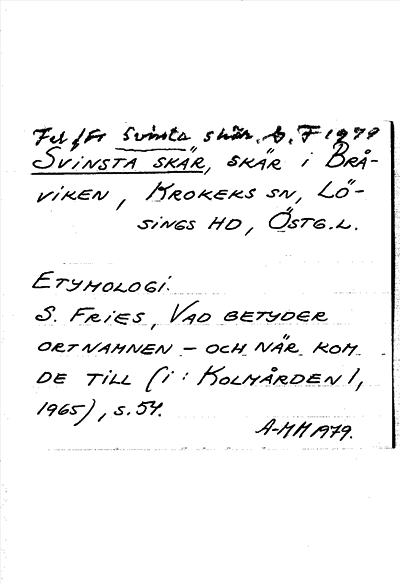 Svinsta skär. b. F 1979
SVINSTA SKÄR, SKÄR I BRÅ-
VIKEN, KROKEKS SN, LÖ-
SINGS HD, ÖSTG.L.
ETYMOLOGI:
S. FRIES, VAD BETYDER
ORTNAMNEN – OCH NÄR KOM
DE TILL (I: KOLMÅRDEN 1,
1965), S. 54.
A-MH 1979.